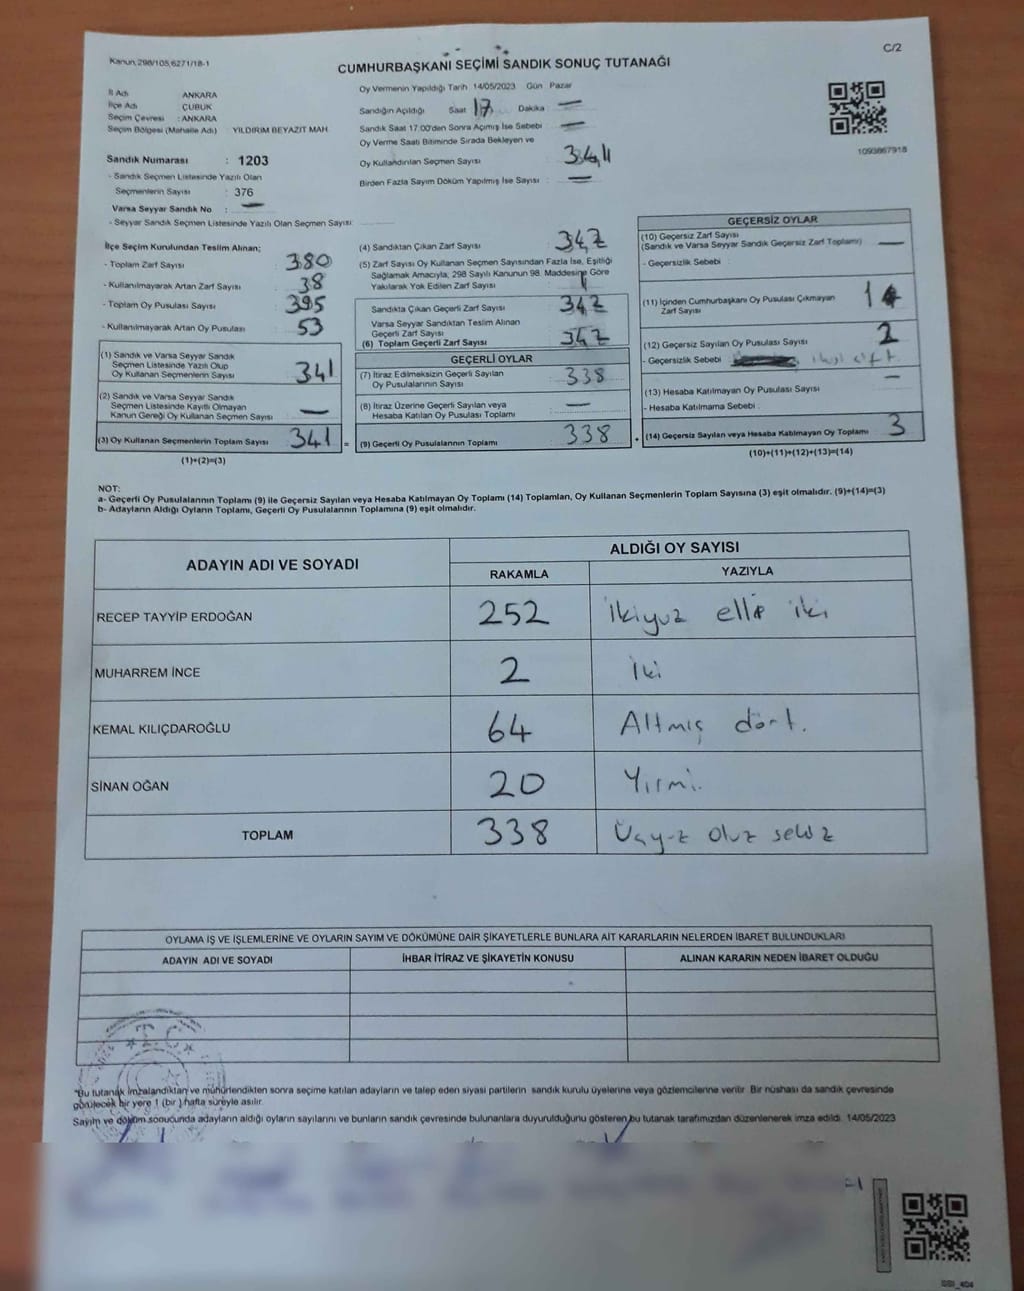 C/2
Kanun,298/105,6271/18-1
CUMHURBAŞKANI SEÇİMİ SANDIK SONUÇ TUTANAĞI
İl Adı ANKARA
İlçe Adı ÇUBUK
Seçim Çevresi : ANKARA
Seçim Bölgesi (Mahalle Adı) YILDIRIM BEYAZIT MAH.
Sandık Numarası : 1203
- Sandık Seçmen Listesinde Yazılı Olan
Seçmenlerin Sayısı : 376
Varsa Seyyar Sandık No : —
- Seyyar Sandık Seçmen Listesinde Yazılı Olan Seçmen Sayısı:
Oy Vermenin Yapıldığı Tarih 14/05/2023 Gün Pazar
Sandığın Açıldığı Saat 17 Dakika —
Sandık Saat 17.00'den Sonra Açımış İse Sebebi —
Oy Verme Saati Bitiminde Sırada Bekleyen ve
Oy Kullandırılan Seçmen Sayısı
Birden Fazla Sayım Döküm Yapılmış İse Sayısı : —
1093867918
İlçe Seçim Kurulundan Teslim Alınan;
- Toplam Zarf Sayısı : 380
- Kullanılmayarak Artan Zarf Sayısı : 38
- Toplam Oy Pusulası Sayısı : 395
- Kullanılmayarak Artan Oy Pusulası : 53
(1) Sandık ve Varsa Seyyar Sandık
Seçmen Listesinde Yazılı Olup
Oy Kullanan Seçmenlerin Sayısı 341
(2) Sandık ve Varsa Seyyar Sandık
Seçmen Listesinde Kayıtlı Olmayan
Kanun Gereği Oy Kullanan Seçmen Sayısı —
(3) Oy Kullanan Seçmenlerin Toplam Sayısı 341 =
(1)+(2)=(3)
(4) Sandıktan Çıkan Zarf Sayısı 342
(5) Zarf Sayısı Oy Kullanan Seçmen Sayısından Fazla İse, Eşitliği
Sağlamak Amacıyla, 298 Sayılı Kanunun 98. Maddesine Göre
Yakılarak Yok Edilen Zarf Sayısı
Sandıkta Çıkan Geçerli Zarf Sayısı 342
Varsa Seyyar Sandıktan Teslim Alınan
Geçerli Zarf Sayısı
(6) Toplam Geçerli Zarf Sayısı 342
GEÇERLİ OYLAR
(7) İtiraz Edilmeksizin Geçerli Sayılan
Oy Pusulalarının Sayısı 338
(8) İtiraz Üzerine Geçerli Sayılan veya
Hesaba Katılan Oy Pusulası Toplamı —
(9) Geçerli Oy Pusulalarının Toplamı 338 +
GEÇERSİZ OYLAR
(10) Geçersiz Zarf Sayısı
(Sandık ve Varsa Seyyar Sandık Geçersiz Zarf Toplamı) —
- Geçersizlik Sebebi :
(11) İçinden Cumhurbaşkanı Oy Pusulası Çıkmayan
Zarf Sayısı 1
(12) Geçersiz Sayılan Oy Pusulası Sayısı 2
- Geçersizlik Sebebi çift
(13) Hesaba Katılmayan Oy Pusulası Sayısı —
- Hesaba Katılmama Sebebi :
(14) Geçersiz Sayılan veya Hesaba Katılmayan Oy Toplamı 3
(10)+(11)+(12)+(13)=(14)
NOT:
a- Geçerli Oy Pusulalarının Toplamı (9) ile Geçersiz Sayılan veya Hesaba Katılmayan Oy Toplamı (14) Toplamları, Oy Kullanan Seçmenlerin Toplam Sayısına (3) eşit olmalıdır. (9)+(14)=(3)
b- Adayların Aldığı Oyların Toplamı, Geçerli Oy Pusulalarının Toplamına (9) eşit olmalıdır.
ADAYIN ADI VE SOYADI ALDIĞI OY SAYISI
RAKAMLA YAZIYLA
RECEP TAYYİP ERDOĞAN 252 ikiyüz elli iki
MUHARREM İNCE 2 iki
KEMAL KILIÇDAROĞLU 64 Altmış dört.
SİNAN OĞAN 20 Yirmi.
TOPLAM 338 Üçyüz otuz sekiz
OYLAMA İŞ VE İŞLEMLERİNE VE OYLARIN SAYIM VE DÖKÜMÜNE DAİR ŞİKAYETLERLE BUNLARA AİT KARARLARIN NELERDEN İBARET BULUNDUKLARI
ADAYIN ADI VE SOYADI İHBAR İTİRAZ VE ŞİKAYETİN KONUSU ALINAN KARARIN NEDEN İBARET OLDUĞU
T.C.
*Bu tutanak imzalandıktan ve mühürlendikten sonra seçime katılan adayların ve talep eden siyasi partilerin sandık kurulu üyelerine veya gözlemcilerine verilir. Bir nüshası da sandık çevresinde
görülecek bir yere 1 (bir ) hafta süreyle asılır.
Sayım ve döküm sonucunda adayların aldığı oyların sayılarını ve bunların sandık çevresinde bulunanlara duyurulduğunu gösteren bu tutanak tarafımızdan düzenlenerek imza edildi. 14/05/2023